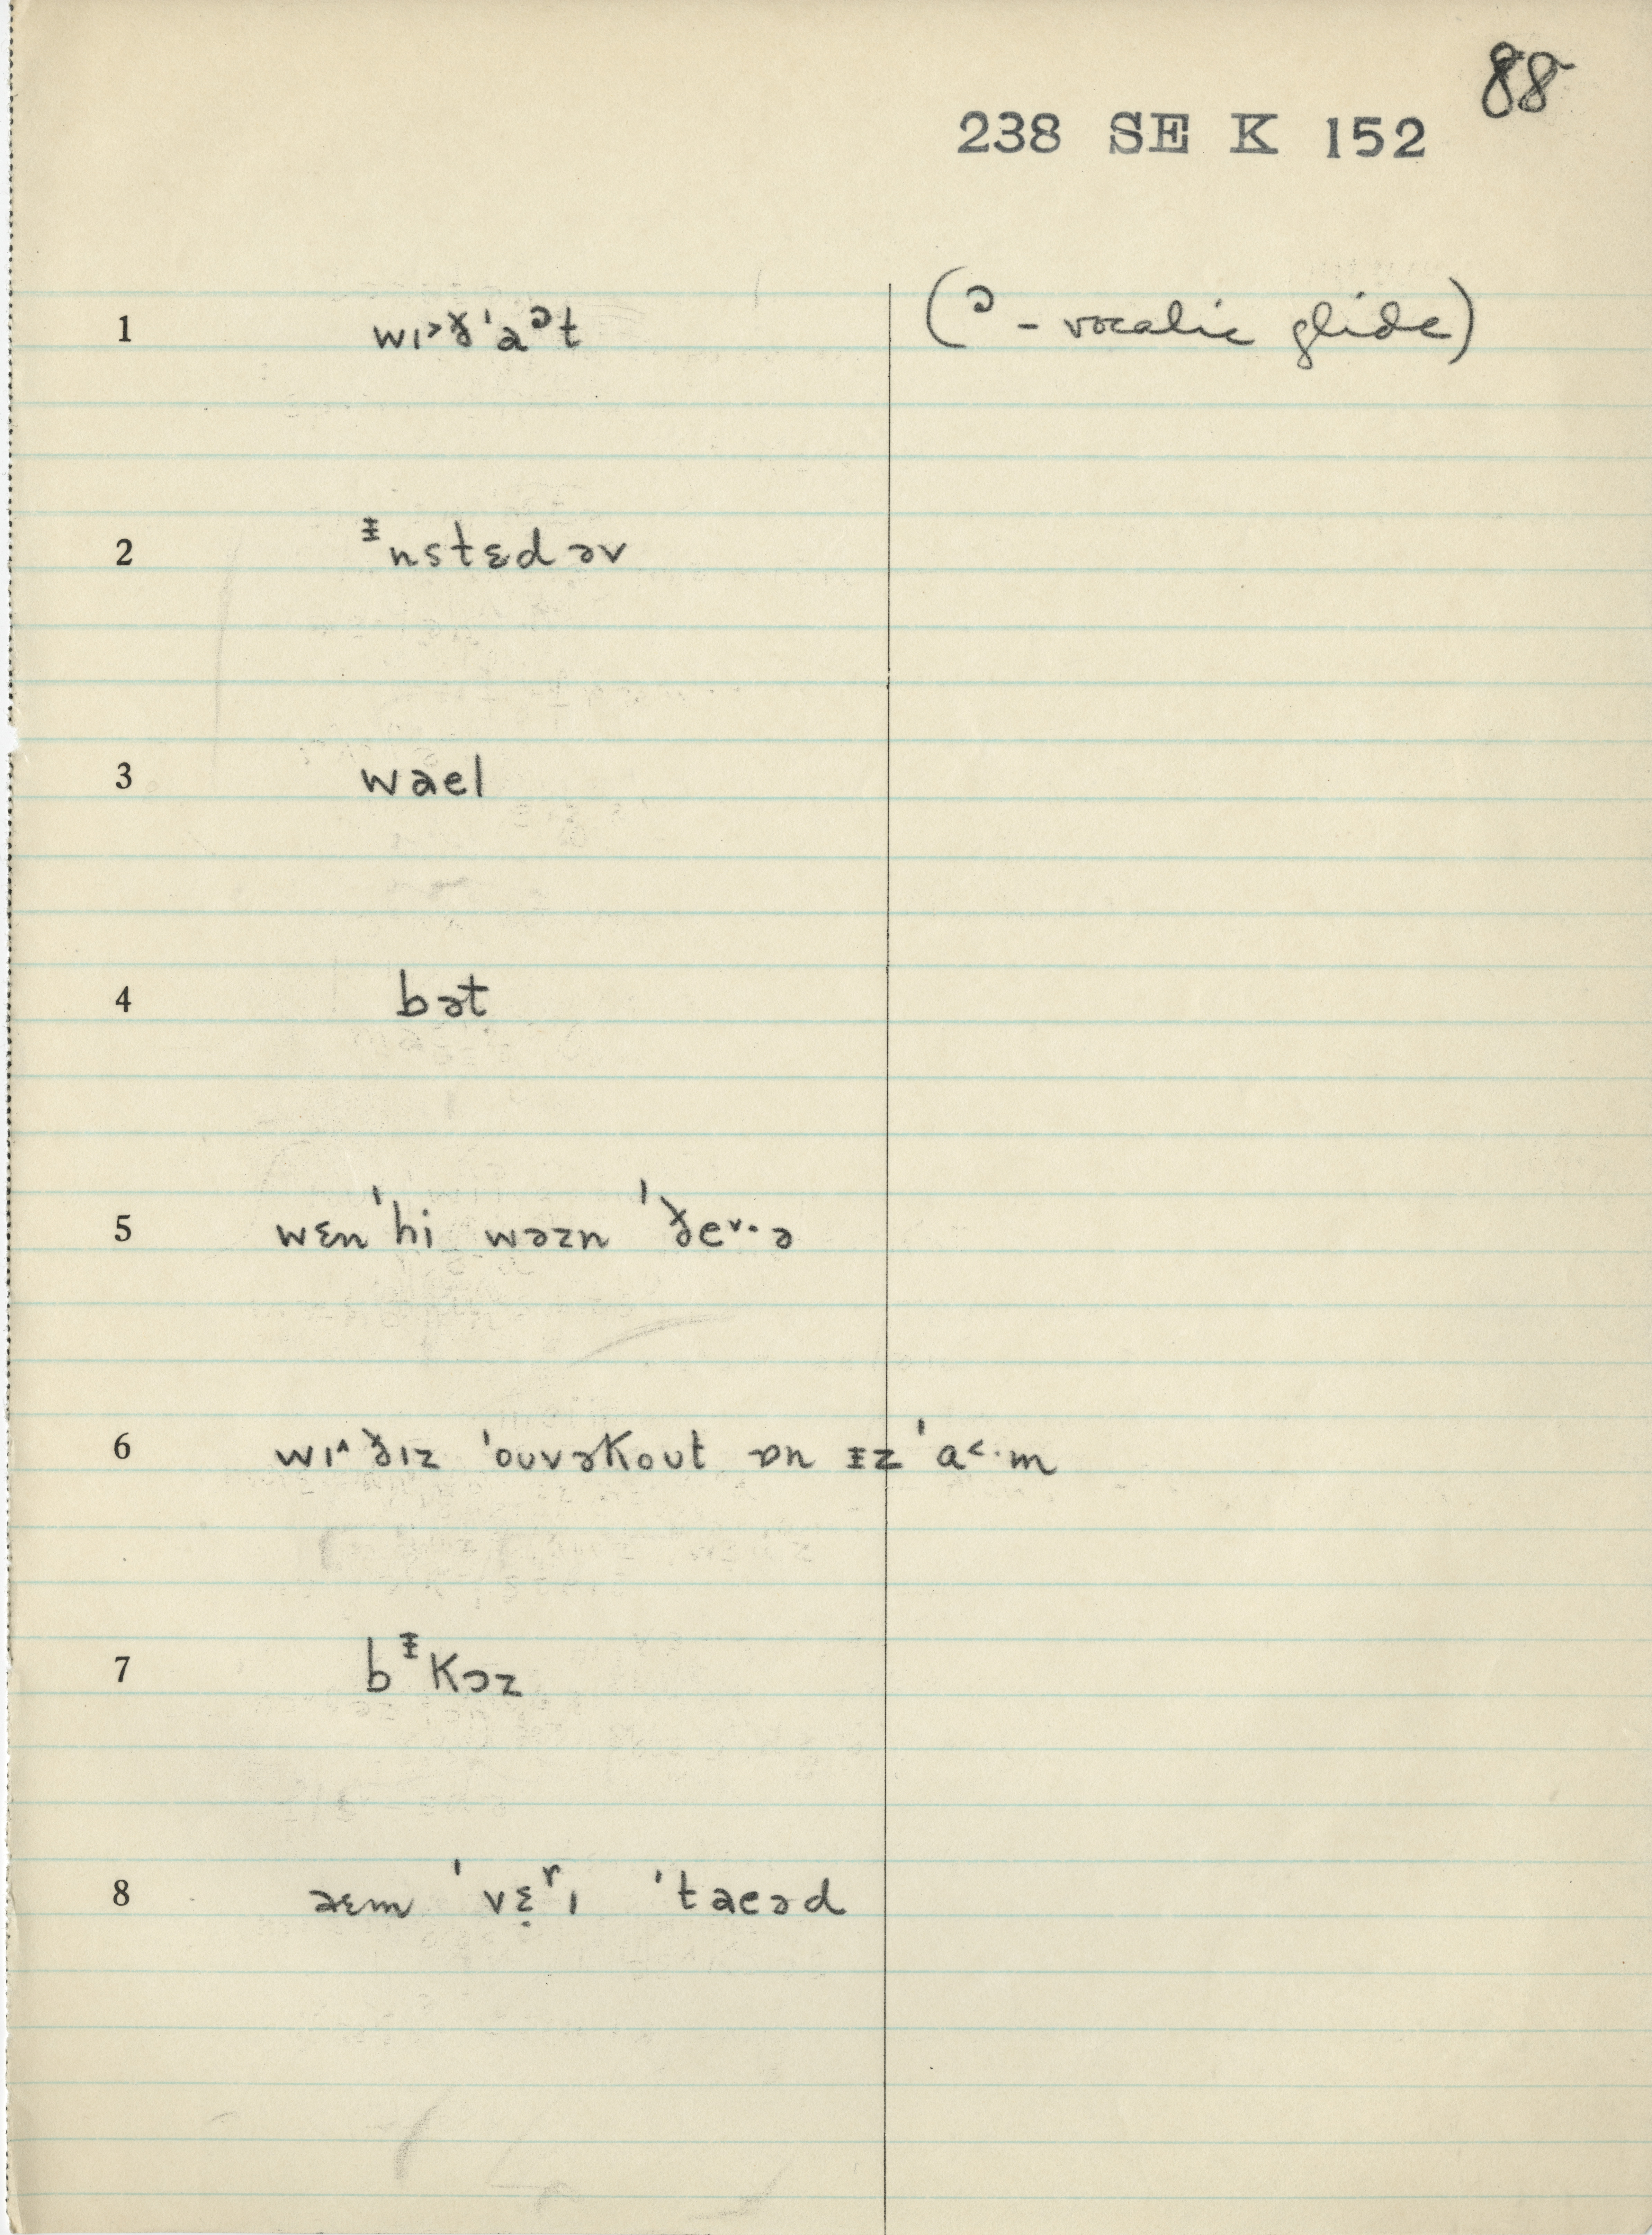 88
238 SE K 152
1 wɪ˃ð'aᵓt (ᵓ - vocalic glide)
2 ᵻnstɛd əv
3 wael
4 bət
5 wɛn 'hi wəzn 'ðe˅·ə
6 wɪ^ ðɪz 'ouvəkout ɒn ᵻz 'a˂·m
7 bᵻkɔz
8 aɛm 'vɛ̣ʳɪ 'taeəd